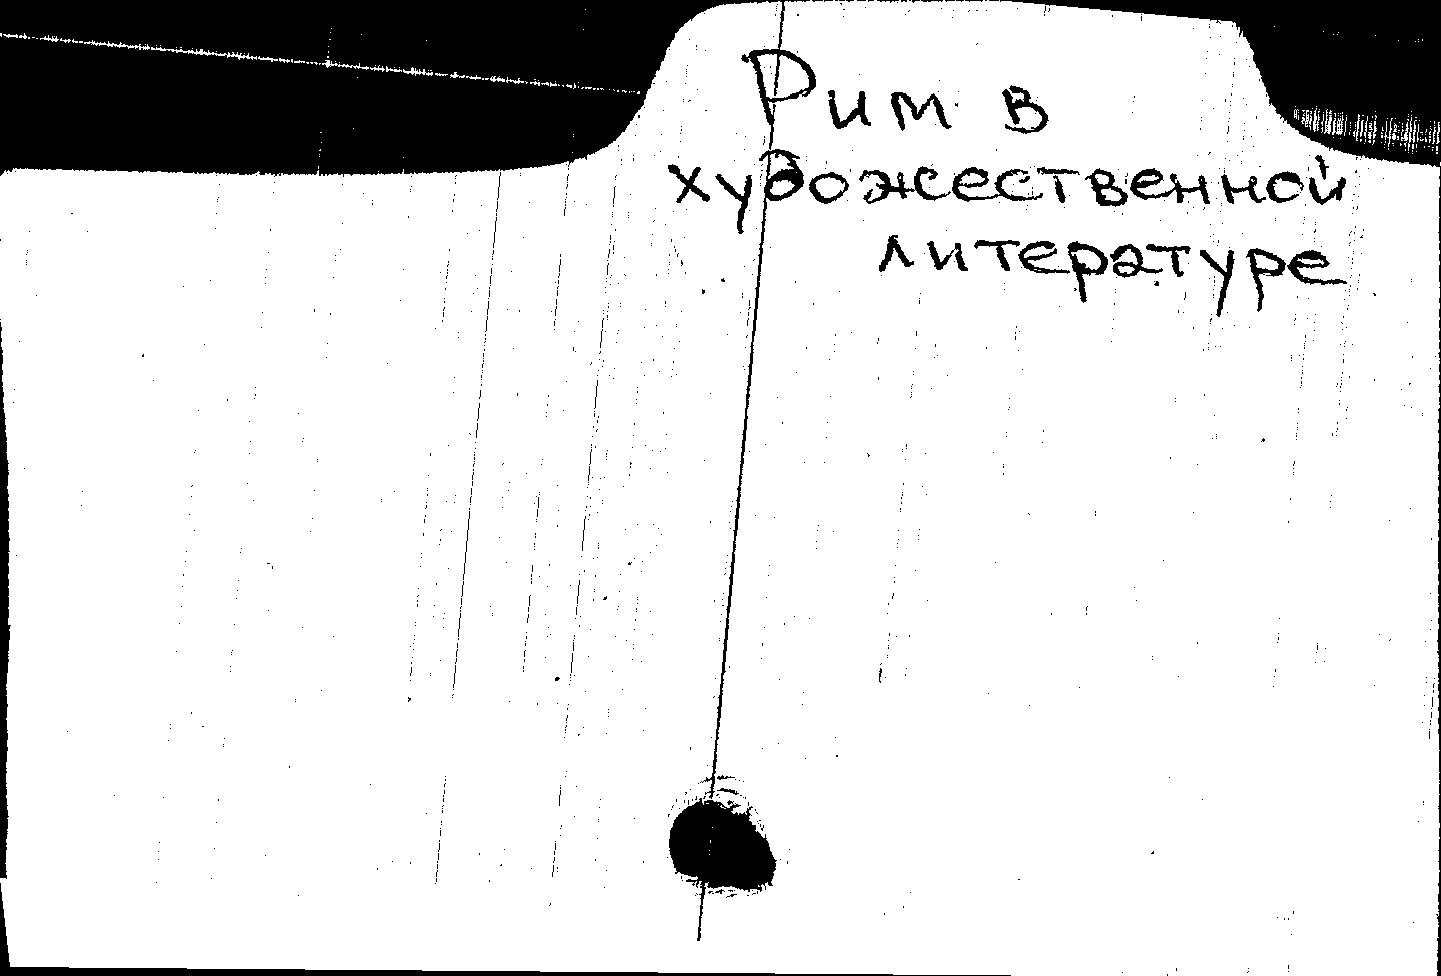 Рим в
художественной
литературе